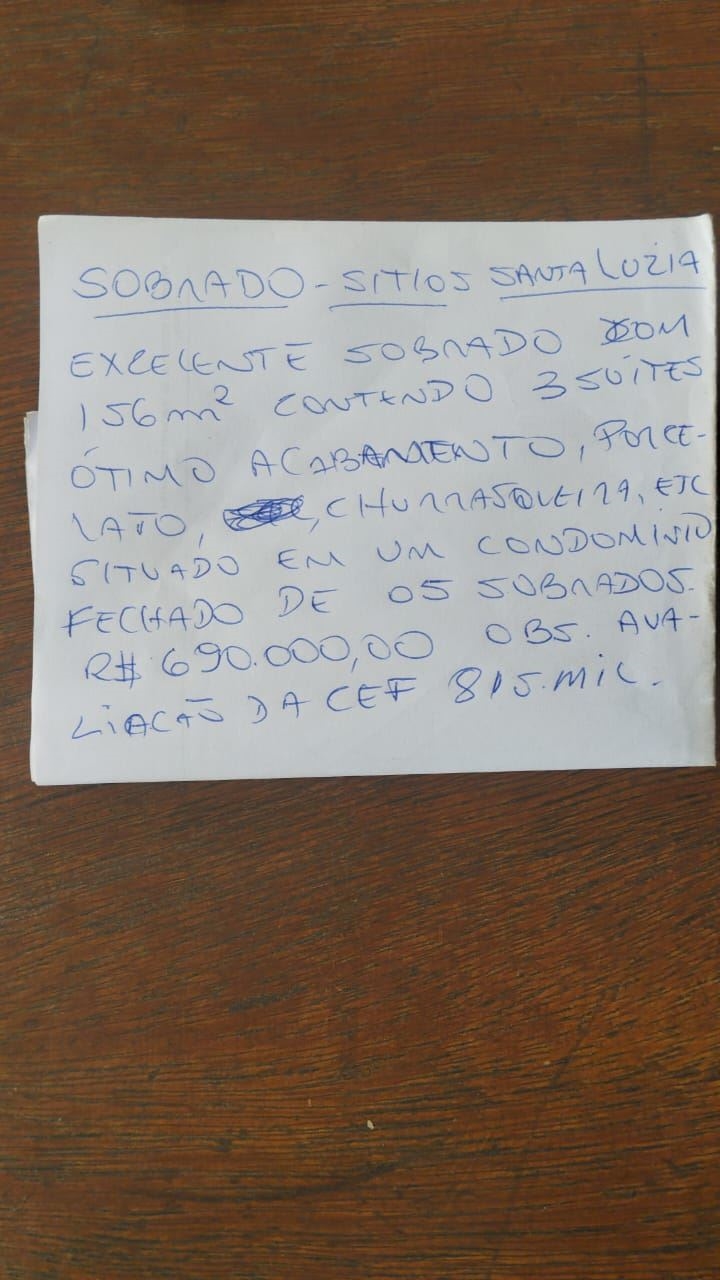 SOBRADO - SITIOS SANTA LUZIA
EXCELENTE SOBRADO COM
156m² CONTENDO 3 SUÍTES
ÓTIMO ACABAMENTO, PORCE-
LATO, , CHURRASQUEIRA, ETC
SITUADO EM UM CONDOMÍNIO
FECHADO DE 05 SOBRADOS.
R$ 690.000,00 OBS. AVA-
LIAÇÃO DA CEF 815.MIL.